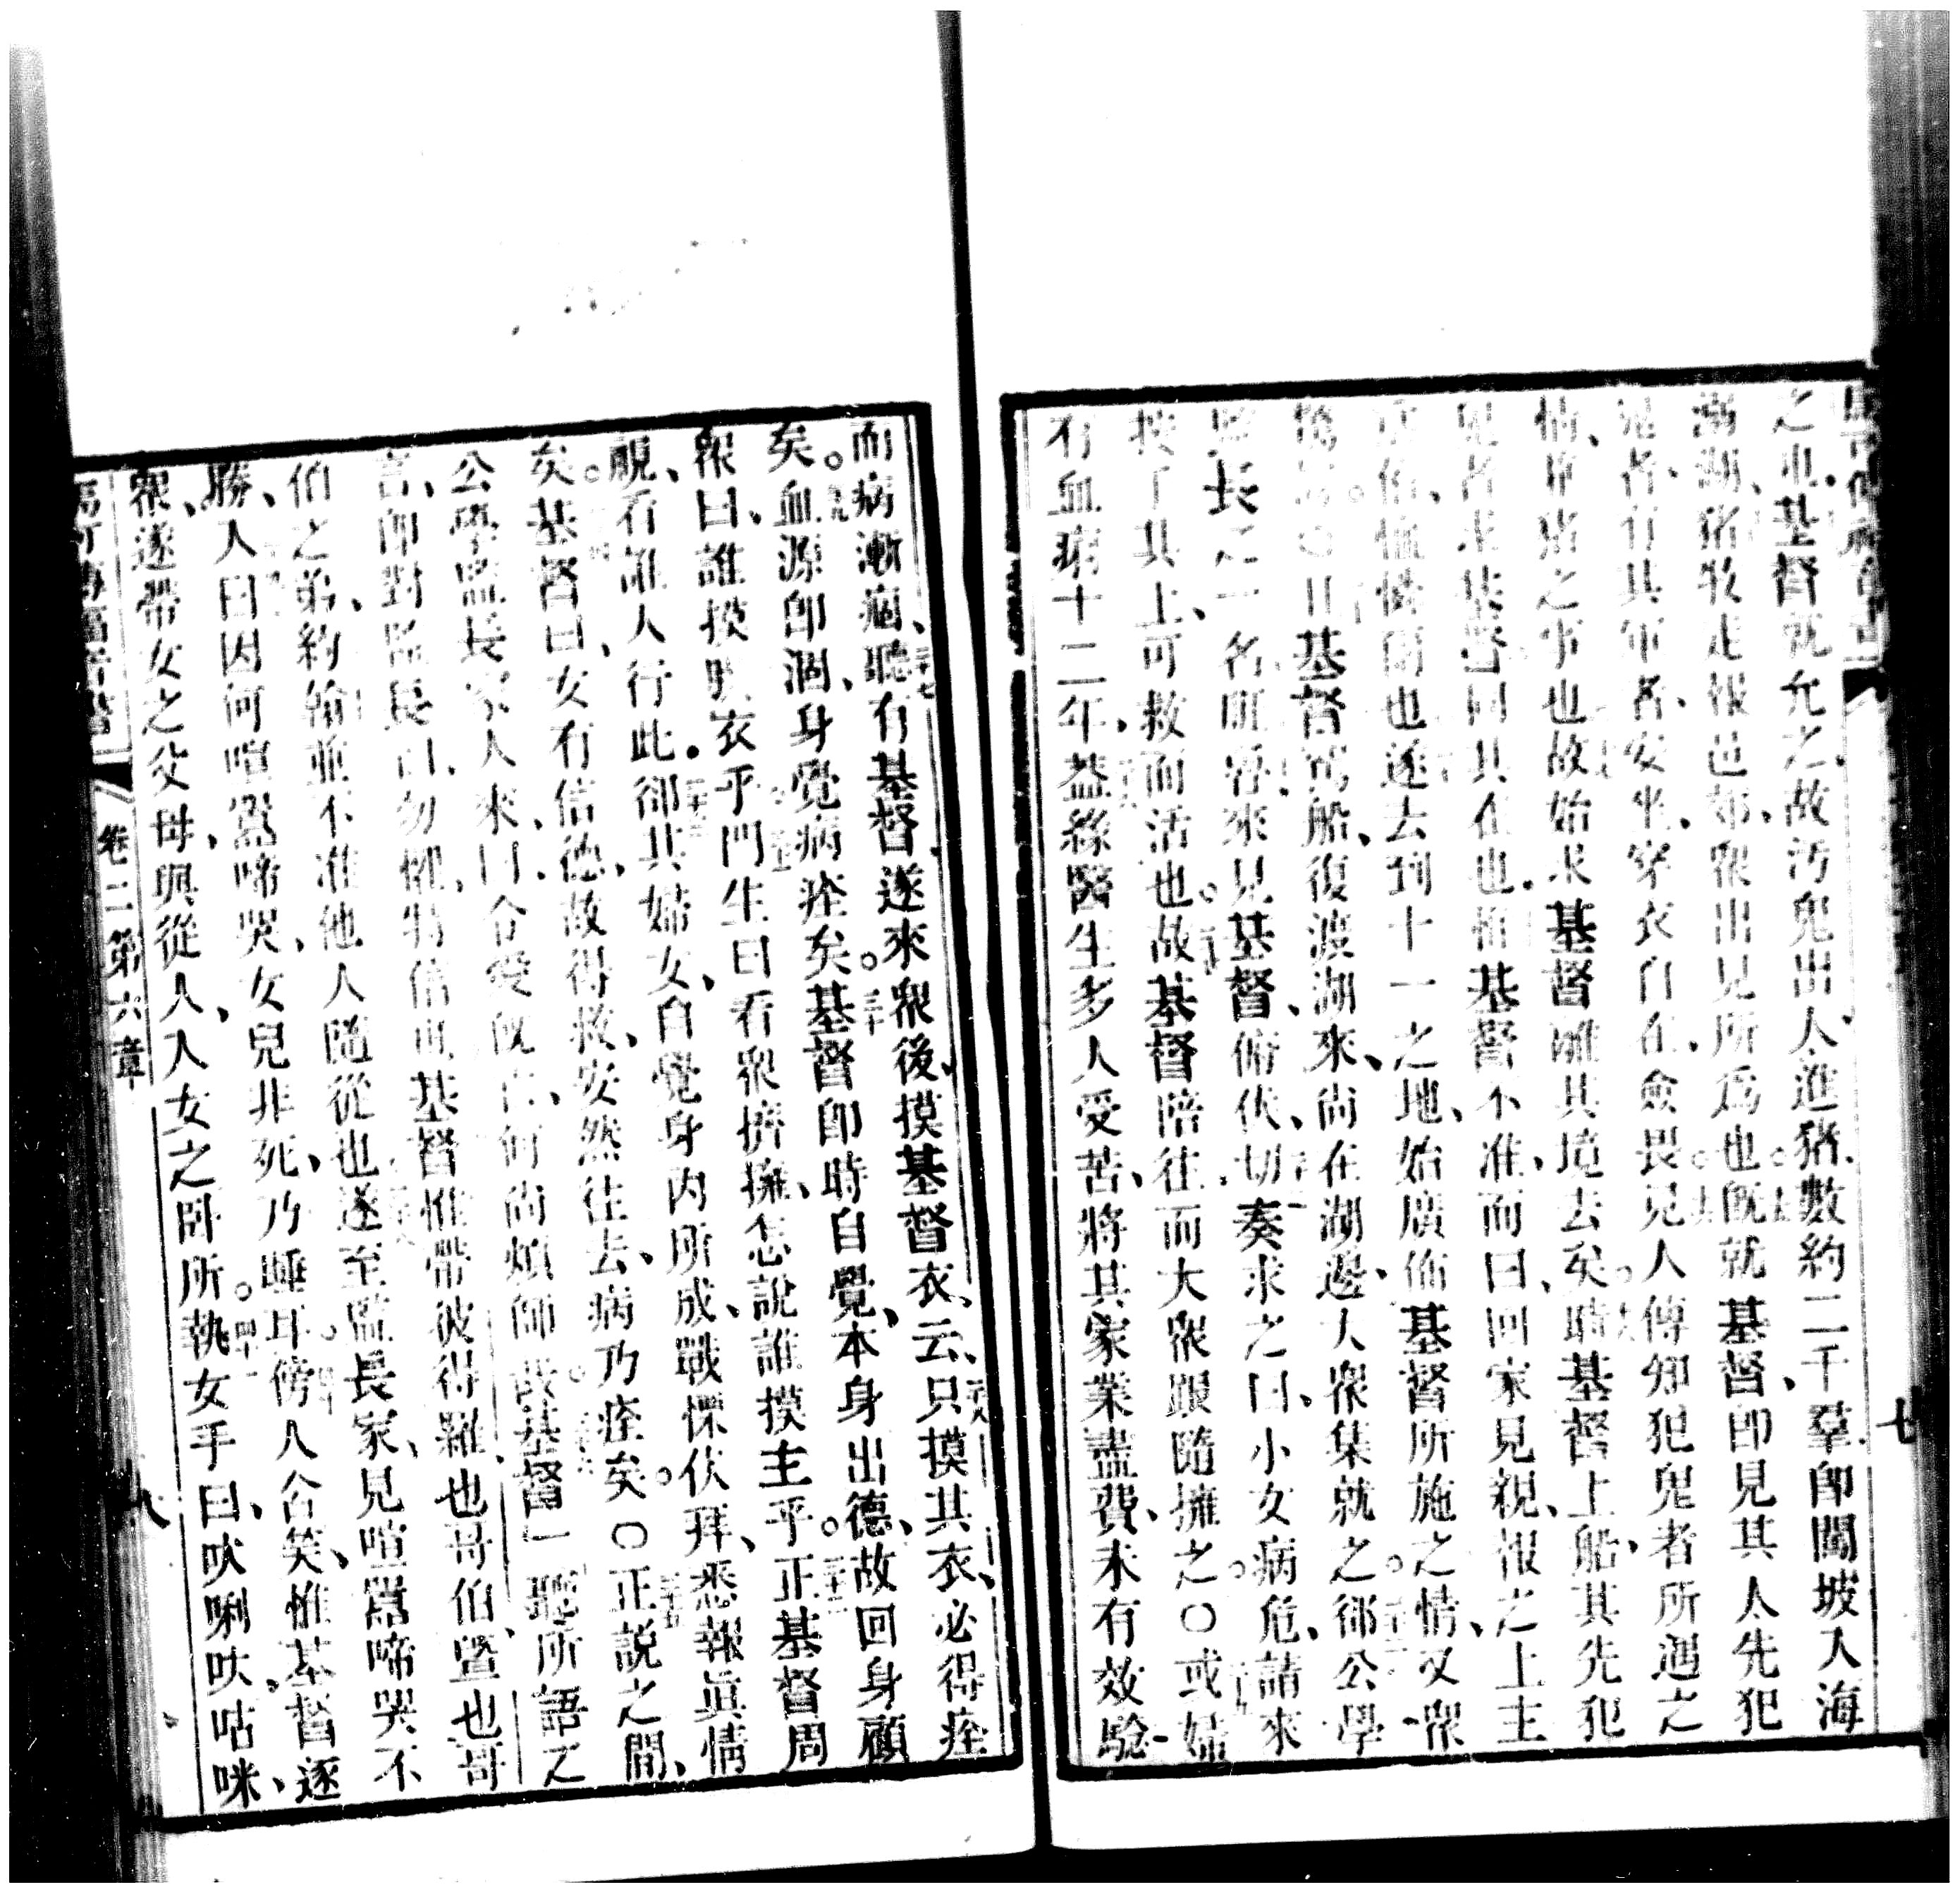 之也基督既允之故汚鬼出人進猪數約二千羣即闖坡入海
湖猪牧走報邑郊衆出見所爲也既就基督即見其人先犯
鬼者有其軍者安坐穿衣自在僉畏見人傳知犯鬼者所遇之
情並猪之事也故始求基督離其境去矣時基督上船其先犯
鬼者求基督同其在也惟基督不准而曰回家見親報之上主
憐也遂去到十一之地始廣佈基督所施之情又衆
基督駕船復渡湖來尚在湖邊大衆集就之卻公學
監長之一名來見基督俯伏切奏求之曰小女病危請來
按手其上可救而活也故基督陪往而大衆跟隨擁之〇或婦
有血病十二年蓋緣醫生多人受苦將其家業盡費未有效騐
而病漸痼聽有基督遂來衆後摸基督衣云只摸其衣必得痊
矣血源即涸身覺病痊矣基督即時自覺本身出德故回身顧
衆曰誰摸衣乎門生曰看衆擠擁怎說誰摸主乎正基督周
覩看誰人行此卻其婦女自覺身內所成戰慄伏拜悉報眞情
矣基督曰女有信德故得救安然往去病乃痊矣〇正說之間
公學監長家人來曰令愛既亡何尚煩師哉基督一聽所語之
言即對監長曰勿懼特信也基督惟帶彼得羅也哥伯暨也哥
伯之弟約翰並不准他人隨從也遂至監長家見喧嚣啼哭不
勝人曰因何喧嚣啼哭女兒非死乃睡耳傍人含笑惟基督逐
衆遂帶女之父母與從人入女之卧所執女手曰吠唎吠咕咪
馬可傳福音書 卷二第六章